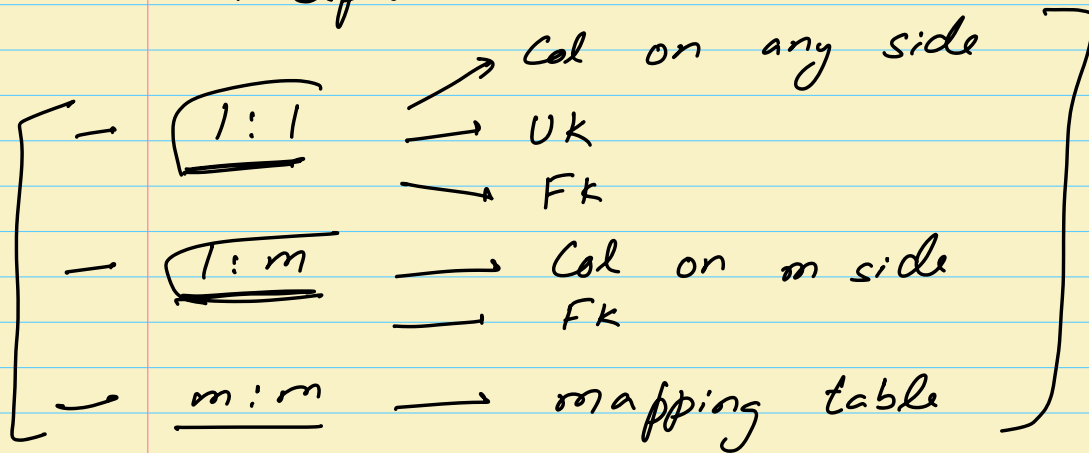 Col on any side
- 1:1 → UK
→ FK
- 1:m → Col on m side
→ FK
- m:m — mapping table